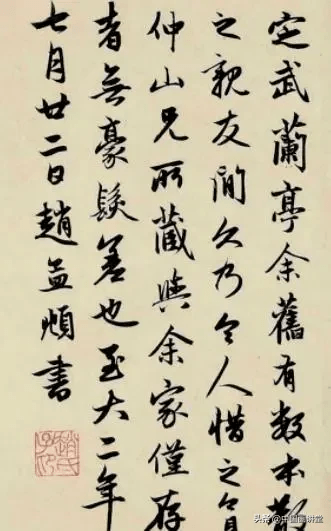 定武蘭亭余舊有數本散
之親友間久乃令人惜之
仲山兄所藏與余家僅存
者無豪髮差也至大二年
七月廿二日趙孟頫書
趙氏子昂
头条 @中国画讲堂